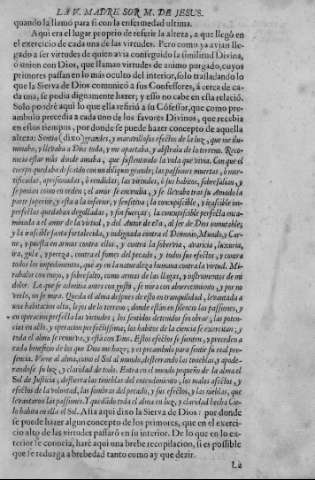 LA V. MADRE SOR M. DE JESUS.
quando la llamó para sí con la enfermedad ultima.
Aqui era el lugar proprio de referir la alteza, a que llegò en
el exercicio de cada una de las virtudes. Pero como ya avian llega-
do a ser virtudes de quien avia conseguido la similitud Divina,
ò union con Dios, que llaman virtudes de animo purgado, cuyos
primores passan en lo mas oculto del interior, solo trasladando lo
que la Sierva de Dios comunicò a sus Confessores, à cerca de ca-
da una, se podia dignamente hazer; y esso no cabe en esta relació.
Solo pondrè aqui lo que ella refiriò a su Cófessor, que como pre-
ambulo precedia a cada uno de los favores Divinos, que recebia
en estos tiempos, por donde se puede hazer concepto de aquella
alteza: Sentia (dixo) grandes, y maravillosos efectos de la luz, que me ilu-
minaba, y llevaba a Dios toda, y me apartaba, y abstraìa de lo terreno. Reco-
nocia estar mas donde amaba, que sustentando la vida que vivia. Con que el
cuerpo quedaba desfallecido con un deliquio grande; las passiones muertas, ò mor-
tificadas, aprisionadas, ò rendidas, las virtudes, ò sus habitos, sobresalian, y
se ponian como en orden; el amor se encendia, y se llevaba tras su Amado la
parte superior, y esta a la inferior, y sensitiva; la concupiscible, è irascible im-
perfectas quedaban degolladas, y sin fuerças; la concupiscible perfecta enca-
minada a el amor de la virtud, y del Autor de ella, al ser de Dios inmutable;
y la irascible santa fortalecida, è indignada contra el Demonio, Mundo, y Car-
ne, y puesta en armas contra ellos, y contra la sobervia, avaricia, luxuria,
ira, gula, y pereza, contra el fomes del pecado, y todos sus efectos, y contra
todos los impedimentos, que ay en la naturaleza humana contra la virtud. Mi-
rabalos con enojo, y sobresalto, como armas de las llagas, è instrumentos de mi
dolor. Lo que se admitia antes con gusto, se mira con aborrecimiento, y por no
verlo, no se mira. Queda el alma despues de esto en tranquilidad, levantada a
una habitacion alta, lexos de lo terreno; donde estàn en silencio las passiones, y
en operacion perfecta las virtudes; los sentidos detenidos sin obrar; las poten-
cias en acto, y operacion perfectissima; los habitos de la ciencia se exercitan; y
toda el alma se renueva, y està con Dios. Estos efectos se sienten, y preceden a
cada beneficio de los que Dios me haze; y es preambulo para sentir su real pre-
sencia. Viene al alma, como el Sol al mundo, desterrando las tinieblas, y apode-
randose su luz, y claridad de todo. Entra en el mundo pequeño de la alma el
Sol de Justicia, destierra las tinieblas del entendimiento, los malos afectos, y
efectos de la voluntad, las sombras del pecado, y sus efectos, y las nieblas, que
levantaron las passiones. Y quedádo toda el alma en luz, y claridad hecha Cie-
lo habita en ella el Sol. Assi aqui dixo la Sierva de Dios: por donde
se puede hazer algun concepto de los primores, que en el exerci-
cio alto de las virtudes passarõ en su interior. De lo que en lo ex-
terior se conocia, harè aqui una breve recopilacion, si es possible
que se reduzga a brebedad tanto como ay que dezir.
La